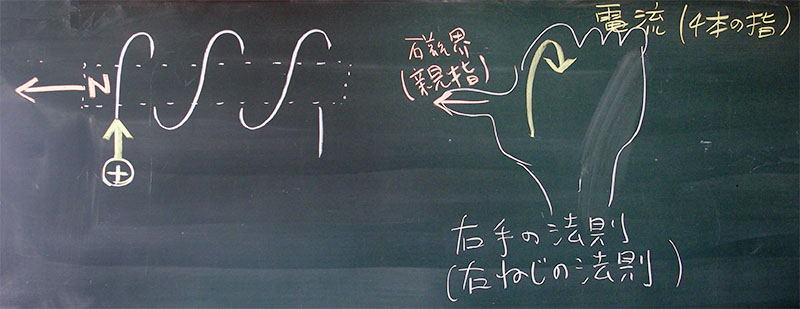 N
+
電流(4本の指)
磁界
(親指)
右手の法則
(右ねじの法則)